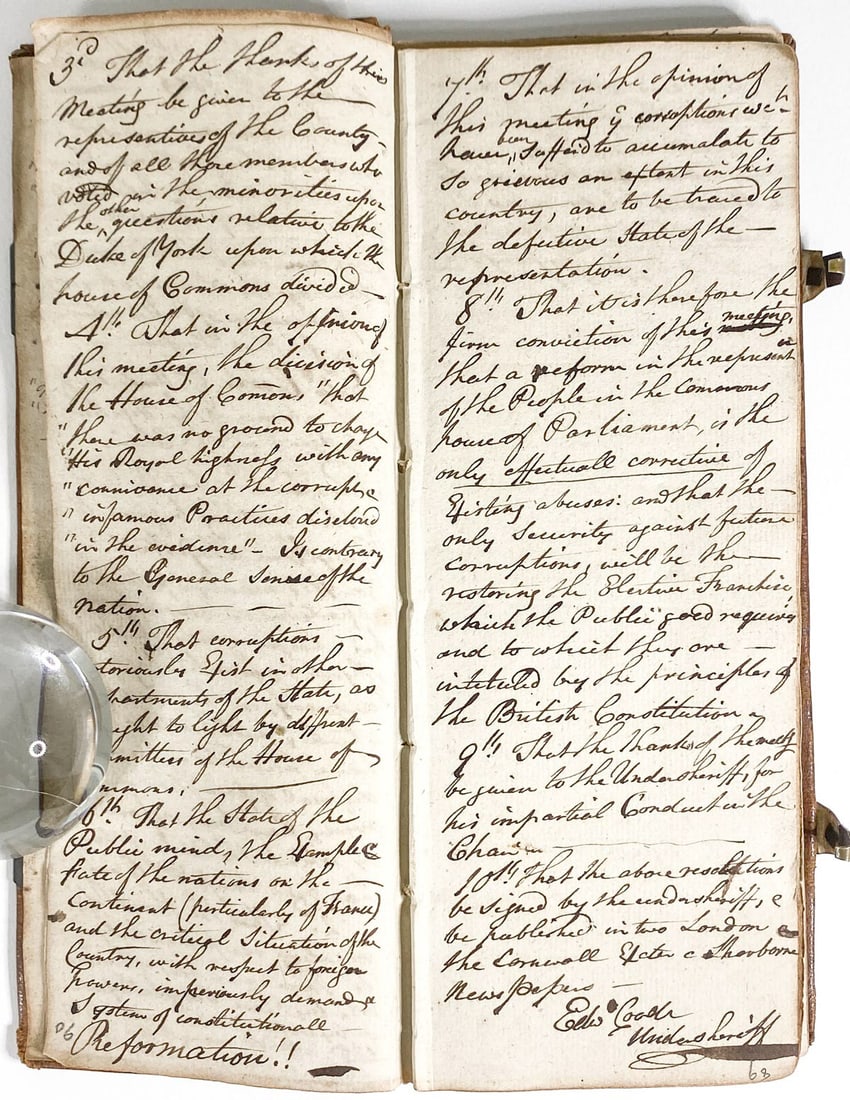 3d That the thanks of this
Meeting be given to the
representatives of the County
and of all those members who
voted in the minorities upon
the other questions relative to the
Duke of York upon which the
house of Commons divided
4th That in the opinion of
this meeting, the division of
the House of Comons "that
"there was no ground to charge
"His Royal highness with any
"connivance at the corrupt &
"infamous Practices disclosed
"in the evidence" - Is contrary
to the General Sense of the
nation.
5th That corruptions
toriously Exist in other
partments of the State, as
ght to light by diffrent
mmittees of the House of
mmons,
6th That the State of the
Public mind, the Example &
fate of the nations on the
Continent (particularly of France)
and the critical Situation of the
Country, with respect to foreign
powers, imperiously demands a
System of constitutionall
Reformation!!
96
7th That in the opinion of
this meeting ye corruptions wch
have been Sufferd to accumalate to
so grievous an extent in this
country, are to be traced to
the defective State of the
representation.
8th That it is therefore the
firm conviction of this meeting,
that a reform in the represent
of the People in the Commons
house of Parliament, is the
only effectuall corrective of
Existing abuses: and that the
only Security against future
corruptions, will be the
restoring the Elective Franchise,
which the Public good requires
and to which they are
intituled by the principles of
the British Constitution
9th That the thanks of the meetg
be given to the Undersheriff, for
his impartial Conduct in the
Chair
10th That the above resolutions
be signed by the undersheriff, &
be published in two London &
the Cornwall Exter & Sherborne
News Papers
Edwd Coode
Undersheriff
68